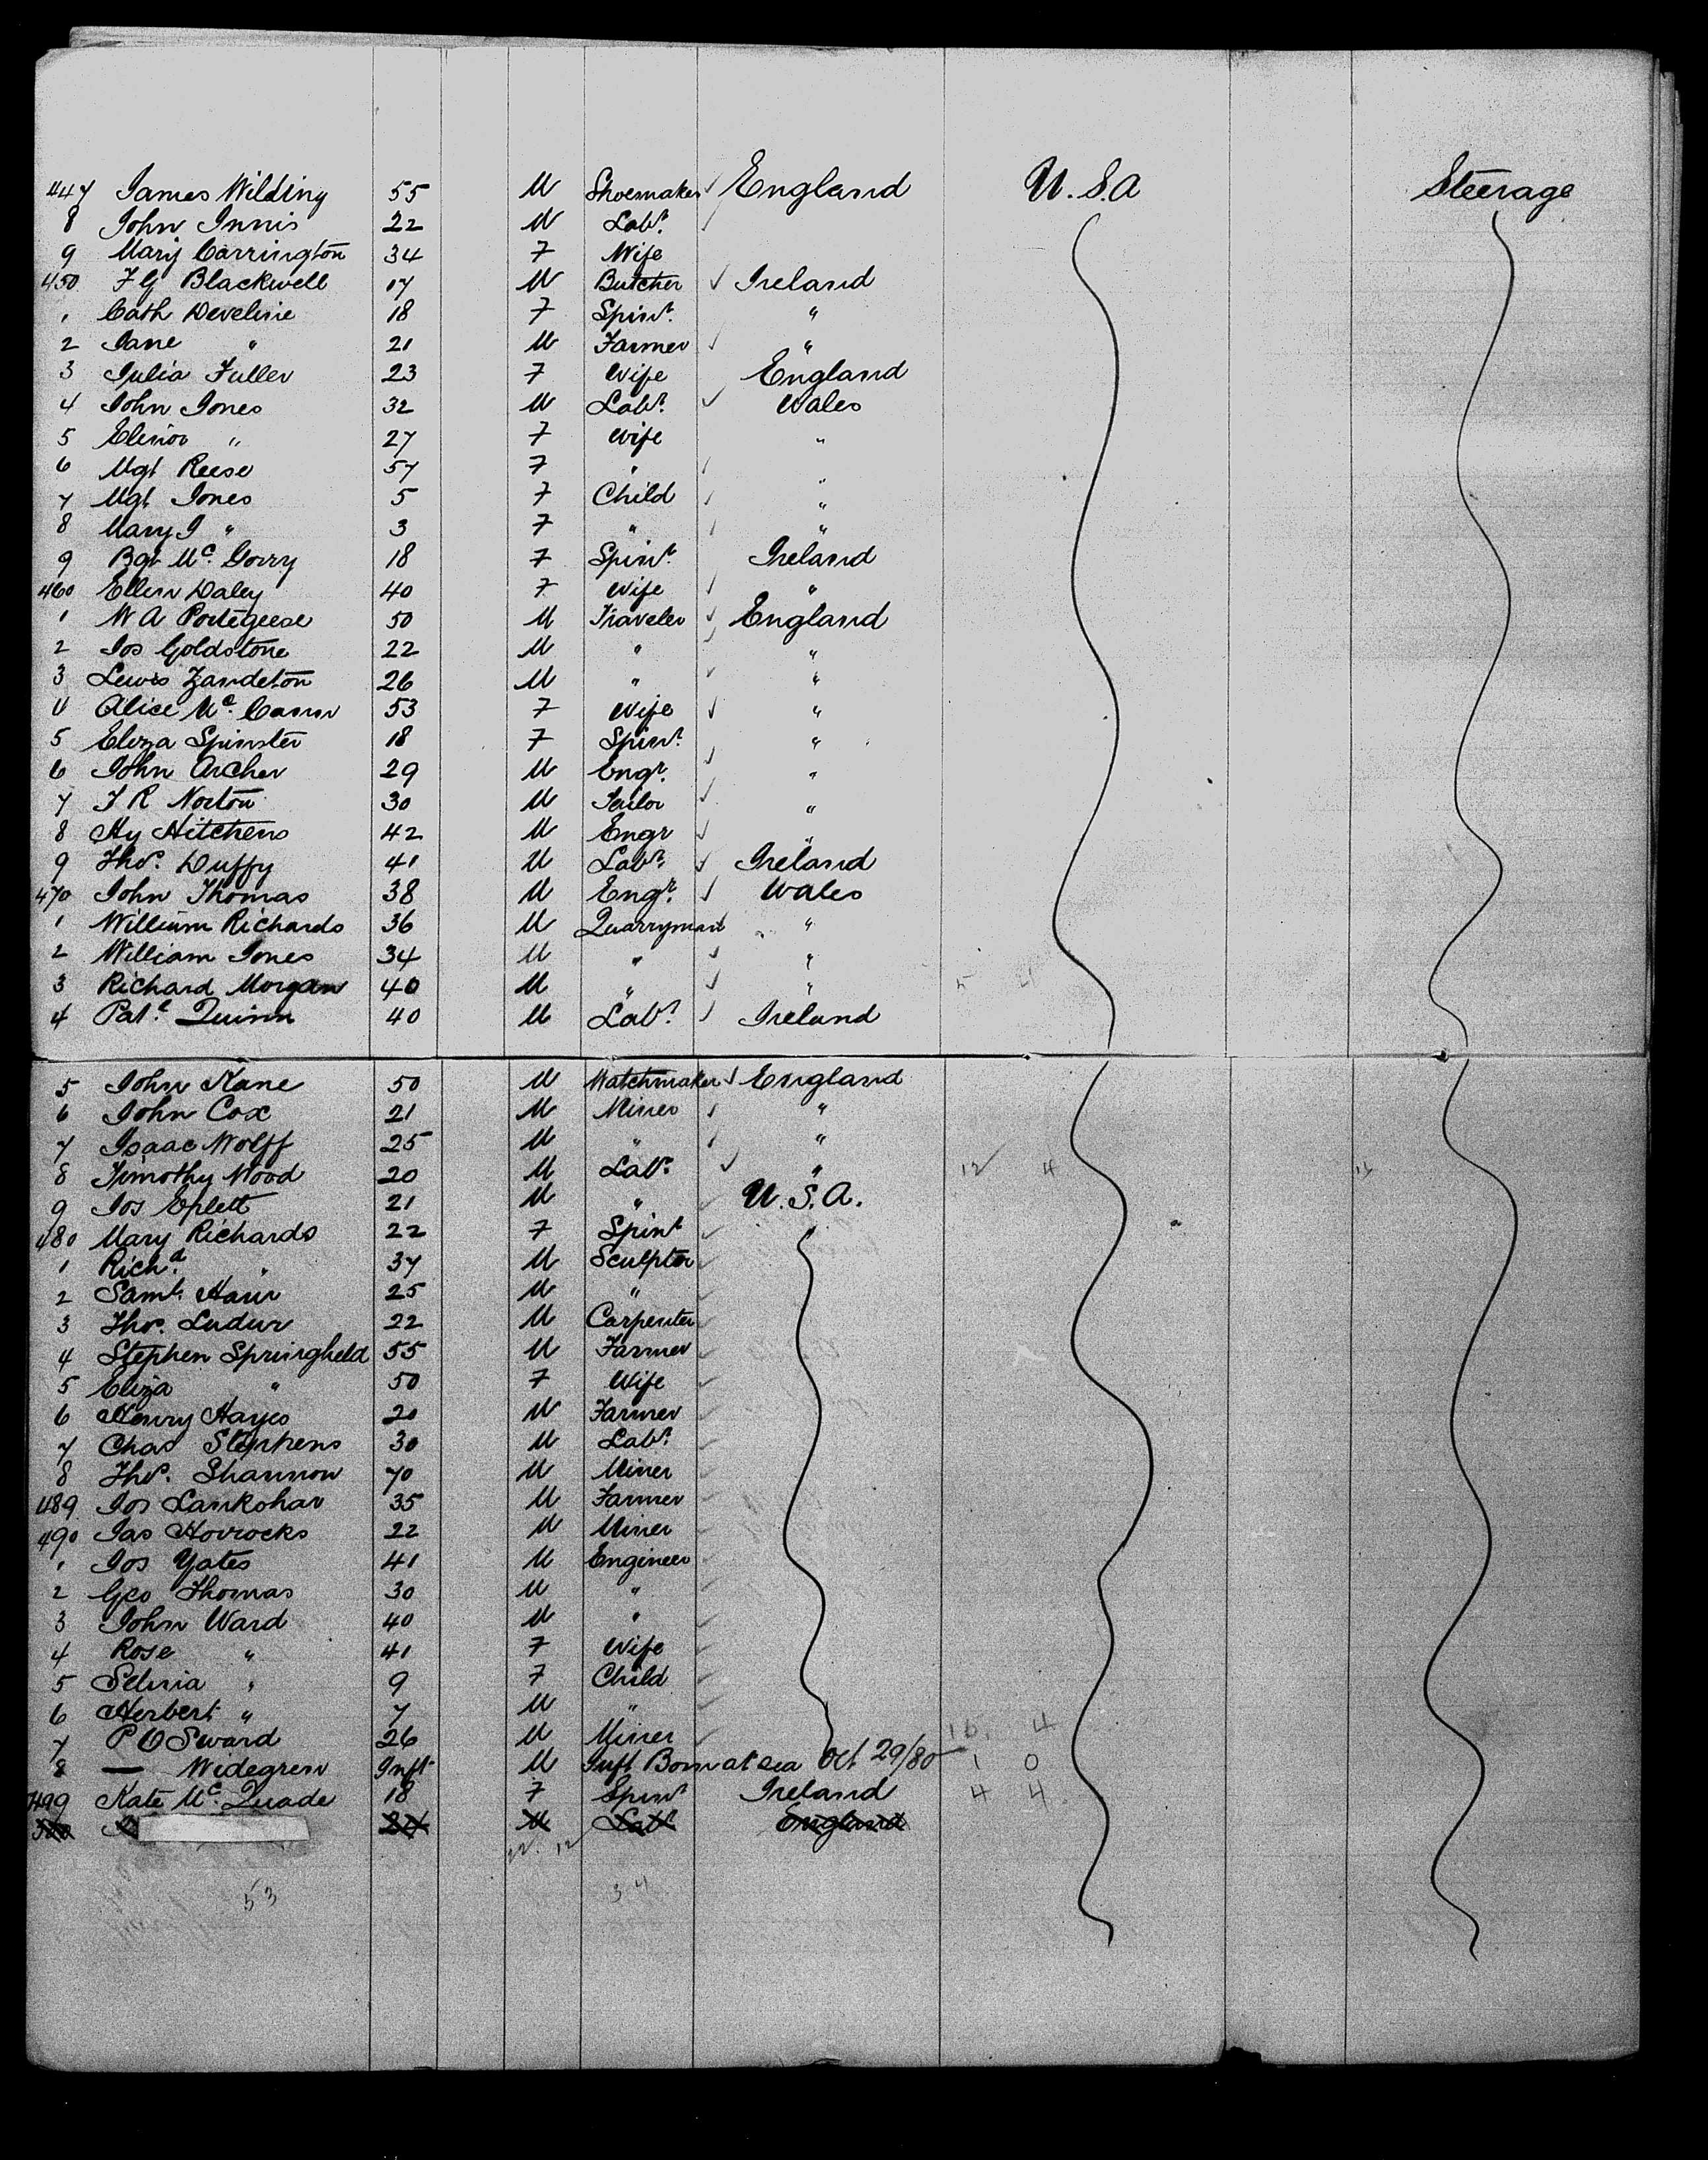 447 James Wilding 55 M Shoemaker England U.S.A Steerage
8 John Innis 22 M Labr.
9 Mary Carrington 34 F Wife
450 F G Blackwell 17 M Butcher Ireland
1 Cath Develine 18 F Spinr. "
2 Jane " 21 M Farmer "
3 Julia Fuller 23 F Wife England
4 John Jones 32 M Labr. Wales
5 Elinor " 27 F Wife "
6 Mgt Reese 57 F "
7 Mgt Jones 5 F Child "
8 Mary J " 3 F " "
9 Bgt Mc. Gorry 18 F Spinr. Ireland
460 Ellen Daley 40 F Wife "
1 W A Portegeese 50 M Traveler England
2 Jos Goldstone 22 M " "
3 Lewis Zandeton 26 M " "
4 Alice Mc. Cann 53 F Wife "
5 Eliza Spinster 18 F Spinr. "
6 John Archer 29 M Engr. "
7 J R Norton 30 M Tailor "
8 Hy Hitchens 42 M Engr "
9 Thos. Duffy 41 M Labr. Ireland
470 John Thomas 38 M Engr. Wales
1 William Richards 36 M Quarryman "
2 William Jones 34 M " "
3 Richard Morgan 40 M " "
4 Patk Quinn 40 M Labr. Ireland
5 John Kane 50 M Watchmaker England
6 John Cox 21 M Miner "
7 Isaac Wolff 25 M " "
8 Timothy Wood 20 M Labr. " 12 4 11
9 Jos Eplett 21 M " U.S.A.
480 Mary Richards 22 F Spinr
1 Richd. " 37 M Sculptor
2 Saml. Hain 25 M "
3 Thos. Ludur 22 M Carpenter
4 Stephen Springheld 55 M Farmer
5 Eliza " 50 F Wife
6 Henry Hayes 20 M Farmer
7 Chas Stephens 30 M Labr.
8 Thos. Shannon 70 M Miner
489 Jos Lankohar 35 M Farmer
490 Jas Horrocks 22 M Miner
1 Jos Yates 41 M Engineer
2 Geo Thomas 30 M "
3 John Ward 40 M "
4 Rose " 41 F Wife
5 Selina " 9 F Child
6 Herbert " 7 M "
7 P O Sward 26 M Miner 16 4
8 — Widegren Inft M Inft Born at sea Oct 29/80 1 0
499 Kate Mc. Quade 18 F Spinr Ireland 4 4
500 24 M Labr England
22. 12
53 34